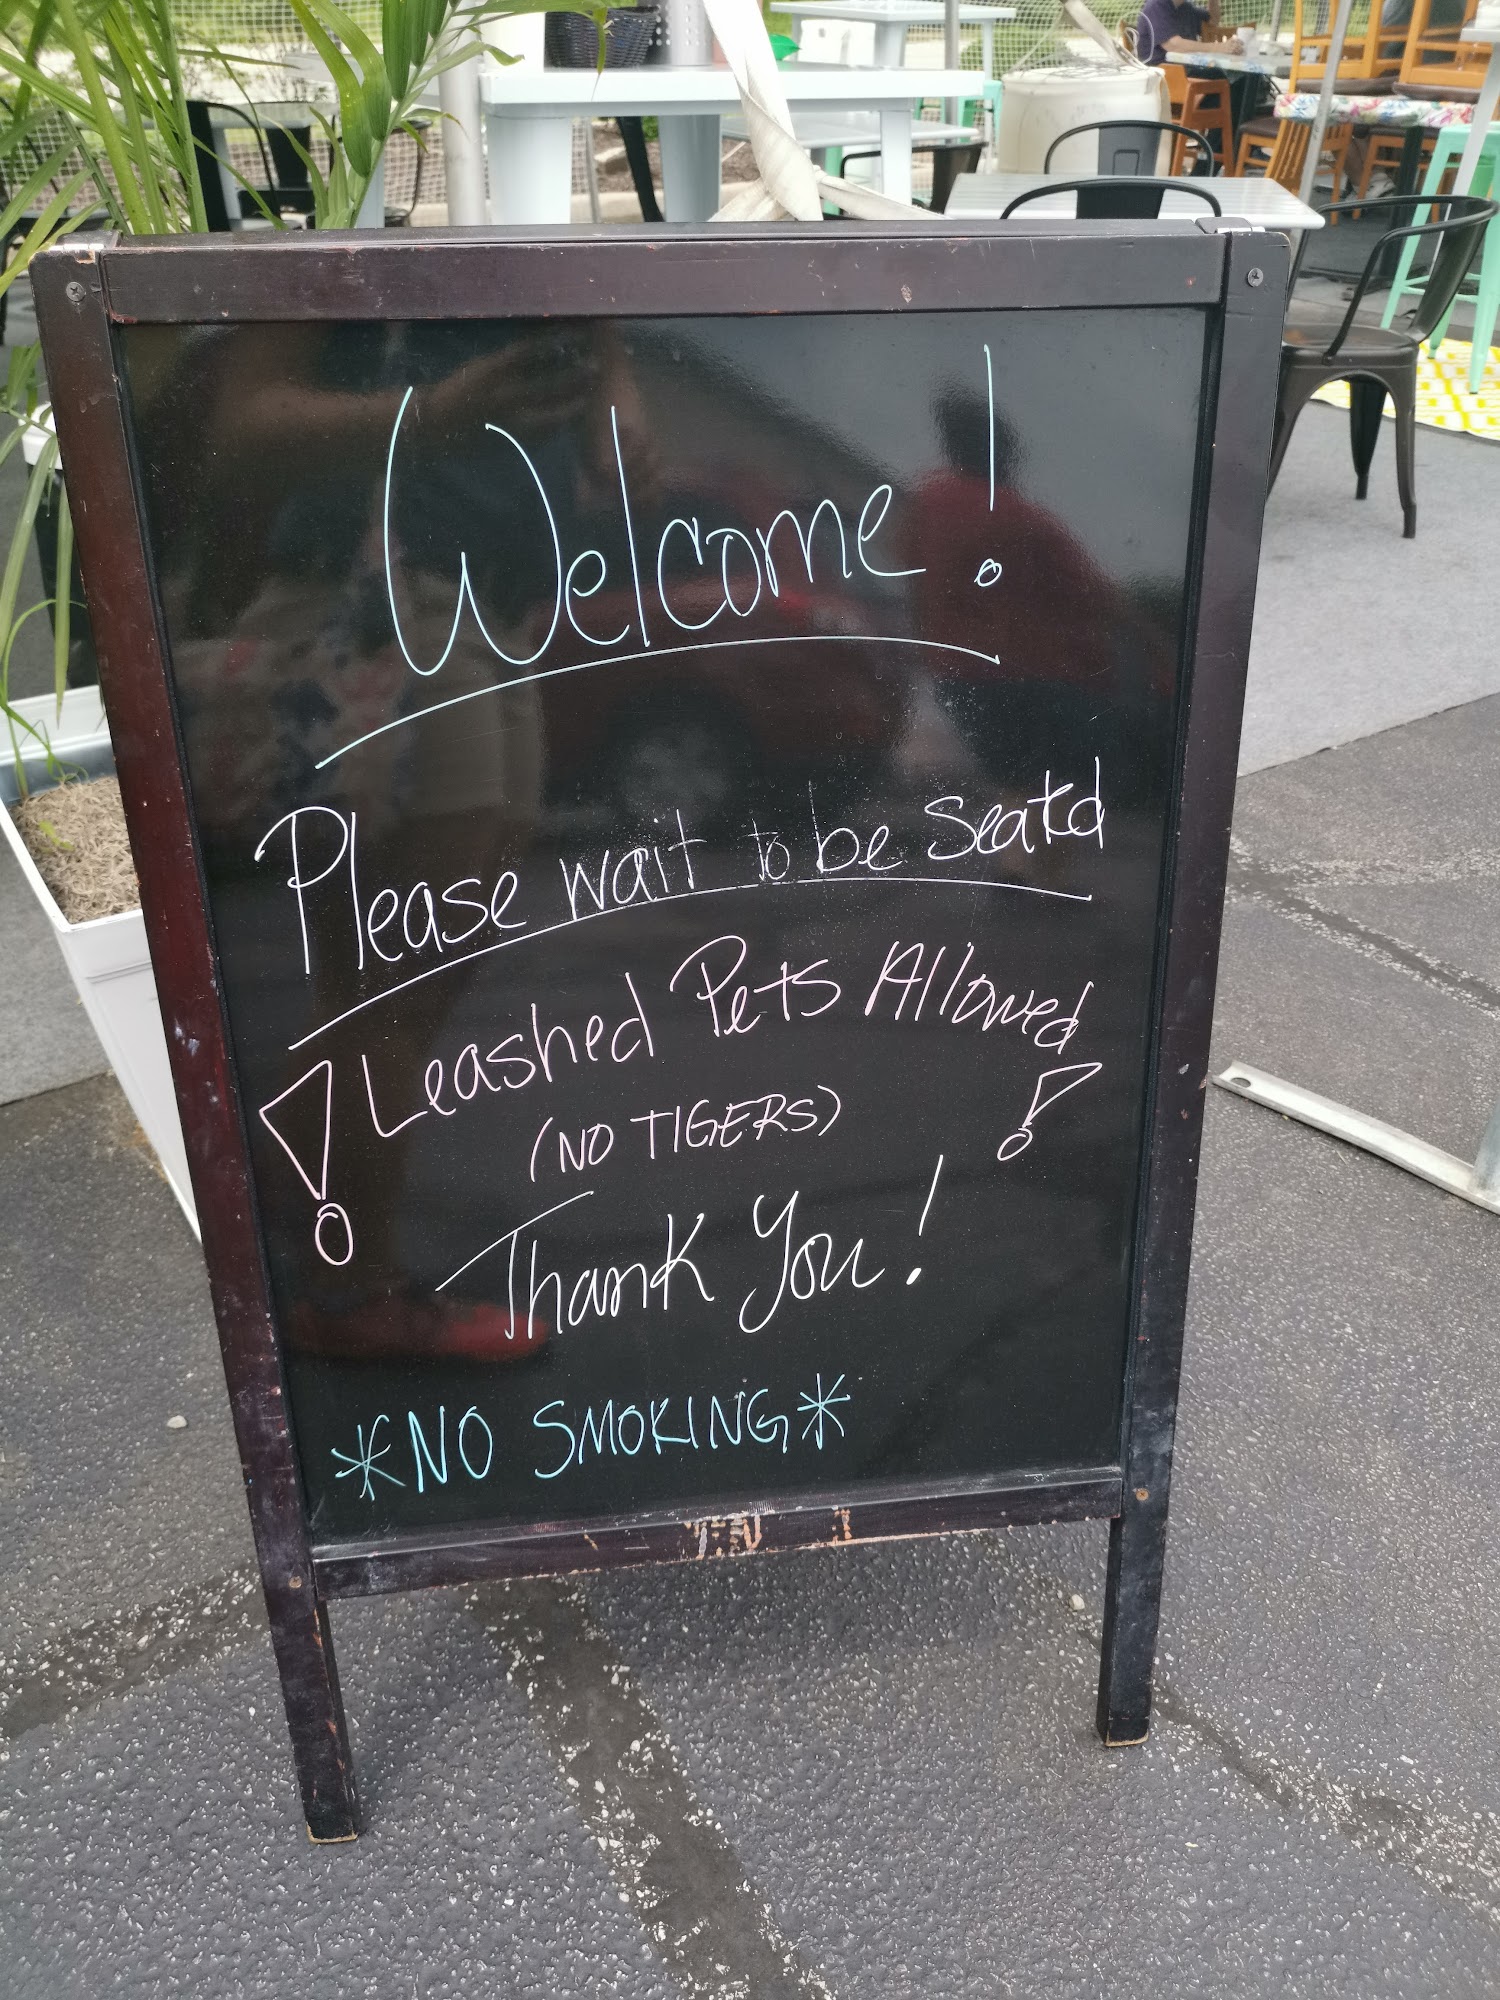 Welcome!
Please wait to be Seated
! Leashed Pets Allowed !
(NO TIGERS)
Thank You!
*NO SMOKING*